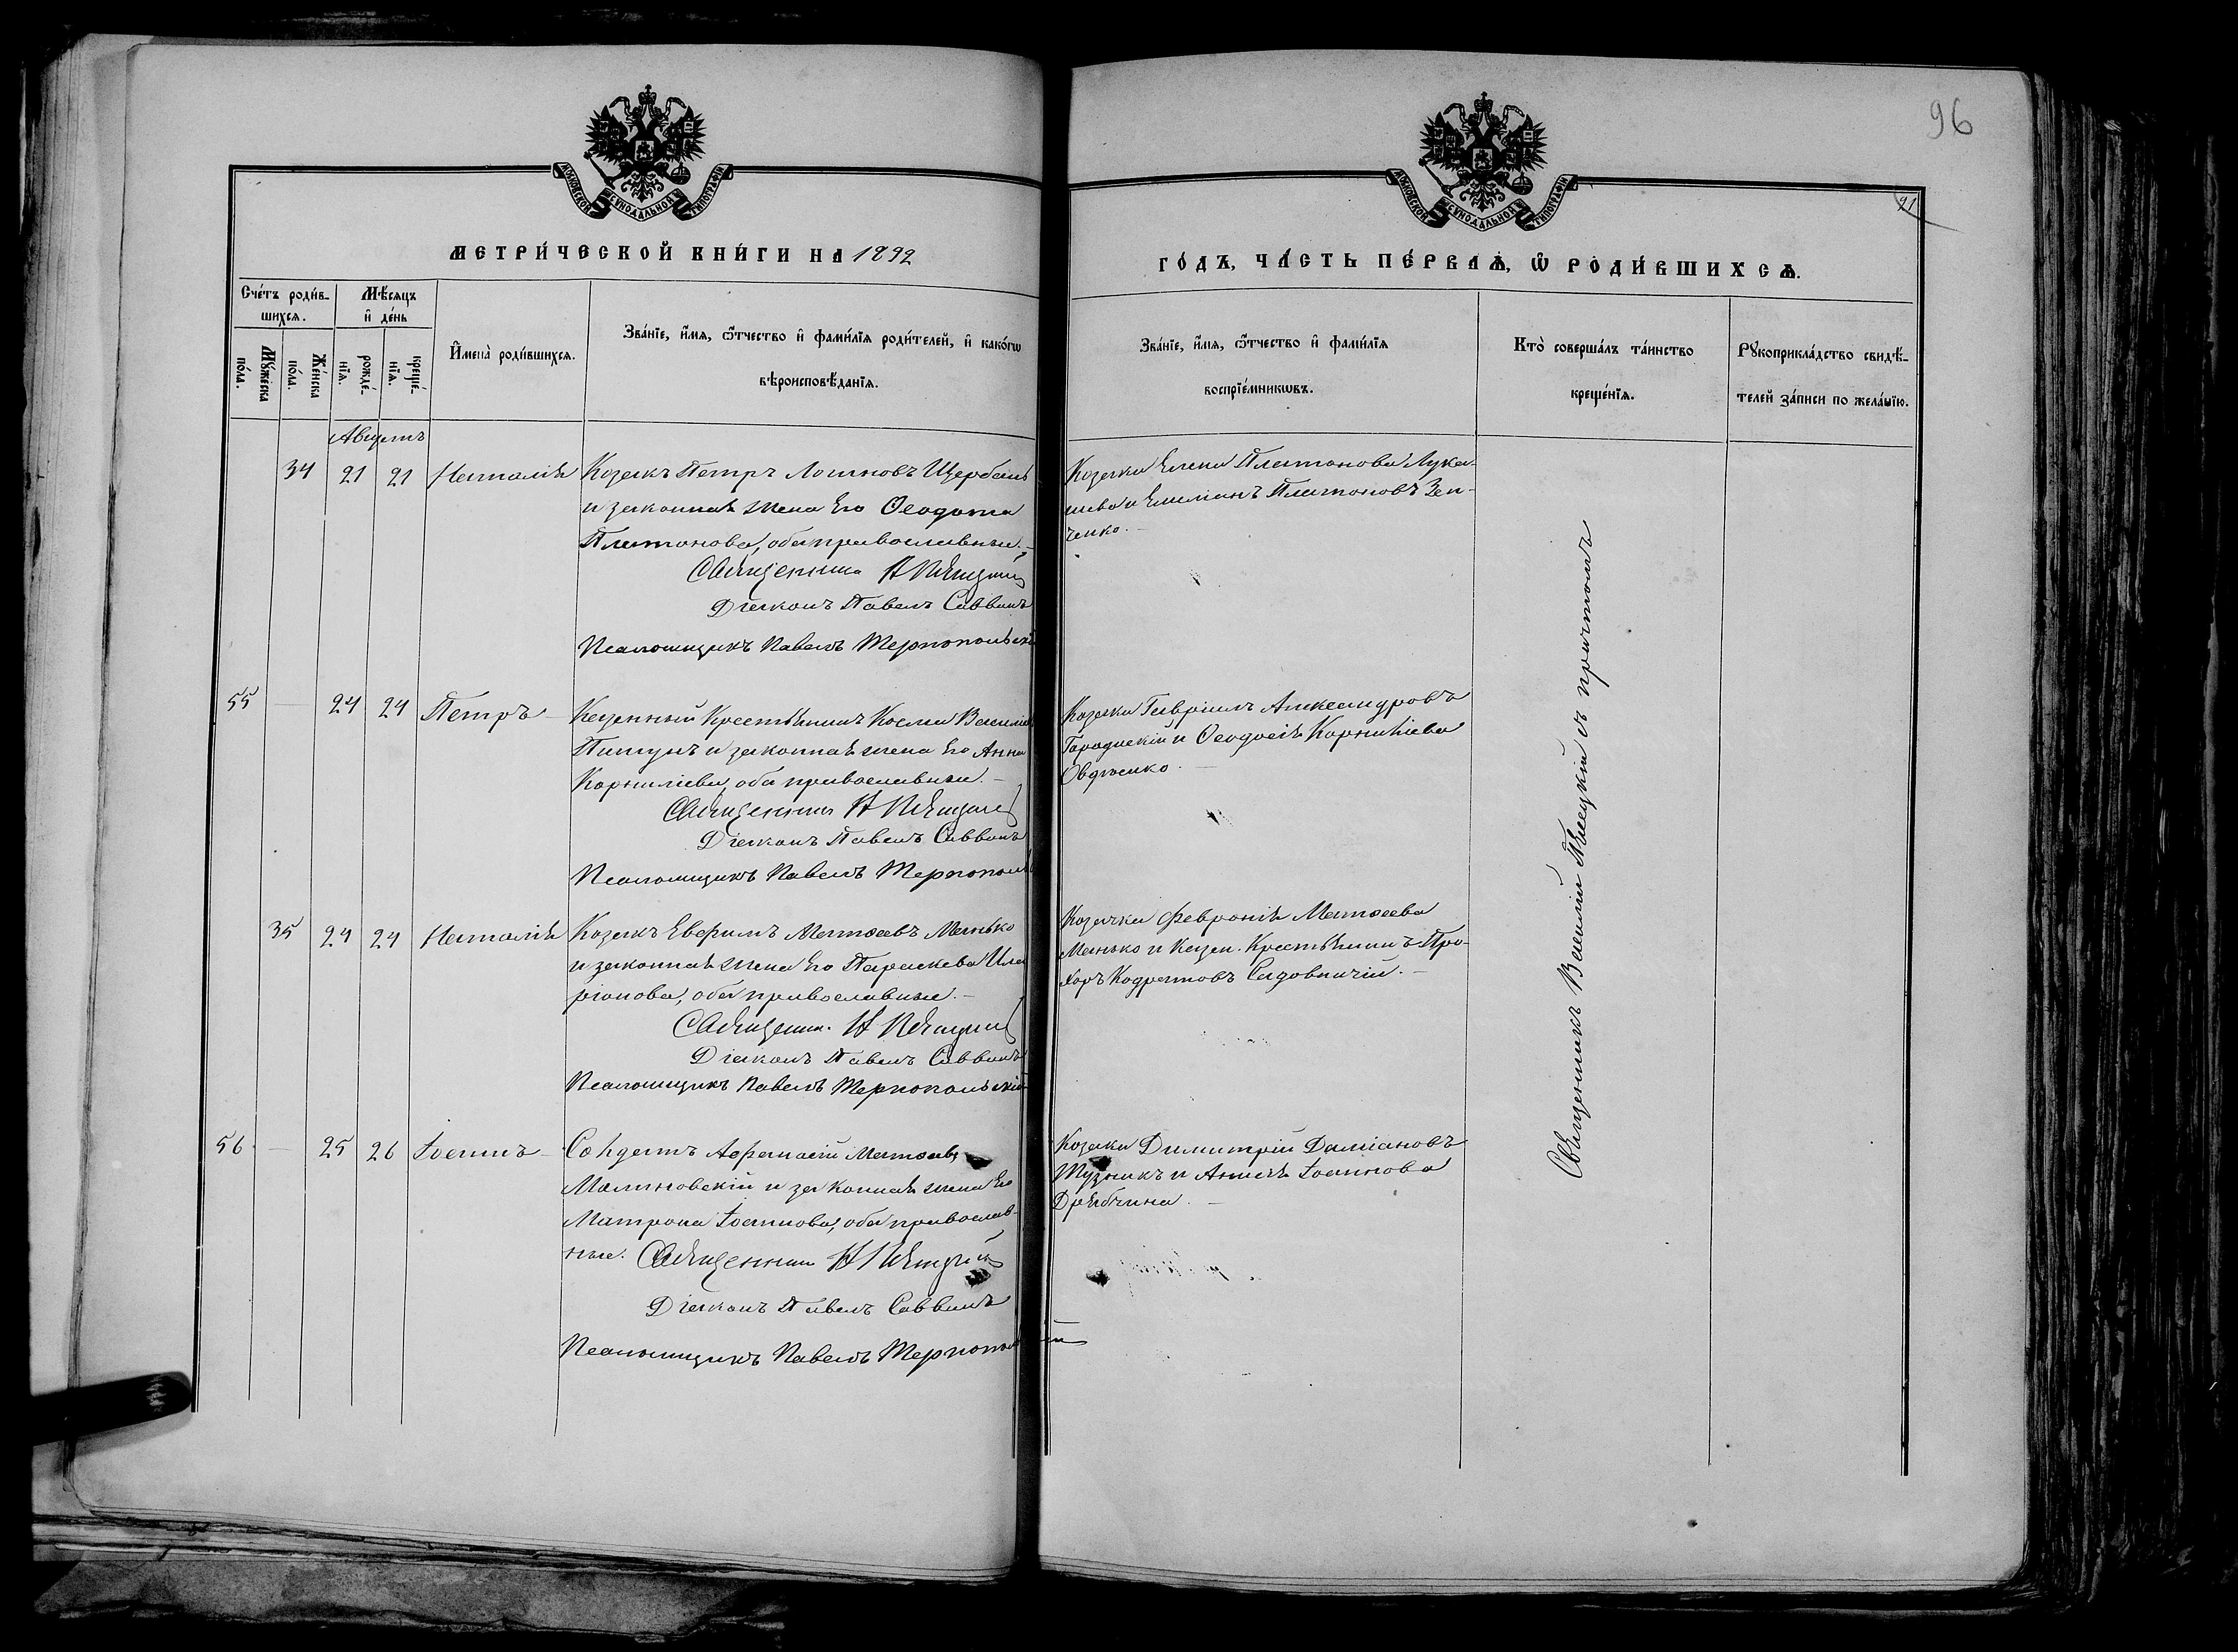 96
91
МОСКОВСКОЙ СУНОДАЛЬНОЙ ТИПОГРАФІИ
МОСКОВСКОЙ СУНОДАЛЬНОЙ ТИПОГРАФІИ
МЕТРИ́ЧЕСКОЙ КНИ́ГИ НА 1892
ГО́ДЪ, ЧА́СТЬ ПЕ́РВАѦ, Ѡ РОДИ́ВШИХСѦ.
Сче́тъ роди́в-
шихсѧ.
Мѣ́сѧцъ
и҆ де́нь
Мꙋ́жеска
по́ла.
Же́нска
по́ла.
рожде́-
нїѧ.
креще́-
нїѧ.
И҆мена̀ роди́вшихсѧ.
Зва́нїе, и҆́мѧ, ѻ҆́тчество и҆ фами́лїѧ роди́телей, и҆ како́гѡ
вѣроисповѣ́данїѧ.
Зва́нїе, и҆́мѧ, ѻ҆́тчество и҆ фами́лїѧ
воспрїе́мникѡвъ.
Кто̀ соверша́лъ та́инство
креще́нїѧ.
Рꙋкоприкла́дство свидѣ́-
телей за́писи по жела́нїю.
Августъ
34 21 21 Наталія Козакъ Петръ Логиновъ Щербань
и законная жена его Ѳеодота
Платонова, оба православные. -
Священникъ
Діаконъ Павелъ Саввинъ
Псаломщикъ Павелъ Тернопольскій
Козаки Елена Платонова Лука-
шева и Емиліанъ Платоновъ Зен-
ченко. -
55 - 24 24 Петръ - Казенный Крестьянинъ Косма Василіевъ
и законная жена его Анна
Корниліева, оба православные. -
Священникъ
Діаконъ Павелъ Саввинъ
Псаломщикъ Павелъ Тернополь
Козаки Гавріилъ Александровъ
Городискій и Ѳеодосія Корниліева
Овдіенко. -
35 24 24 Наталія Козакъ Евфимъ Матѳеевъ Манько
и законная жена его Параскева Ила-
ріонова, оба православные. -
Священник.
Діаконъ Павелъ Саввинъ
Псаломщикъ Павелъ Тернопольскій
Козачка Февронія Матѳеева
Манько и Казен. Крестьянинъ Про-
хоръ Кодратовъ Садовничій. -
56 - 25 26 Іоаннъ - Солдатъ Аѳанасій Матѳеевъ
Малиновскій и законная жена его
Матрона Іоаннова, оба православ-
ные. Священникъ
Діаконъ Павелъ Саввинъ
Псаломщикъ Павелъ Тернопольскій
Козаки Димитрій Даміановъ
Тузникъ и Анисія Іоаннова
Дрябчина. -
Священникъ Василій Пѣлецкій съ причтомъ